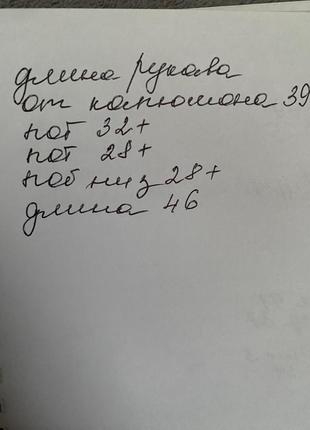 длина рукава
от капюшона 39
поб 32+
пот 28+
поб низ 28+
длина 46